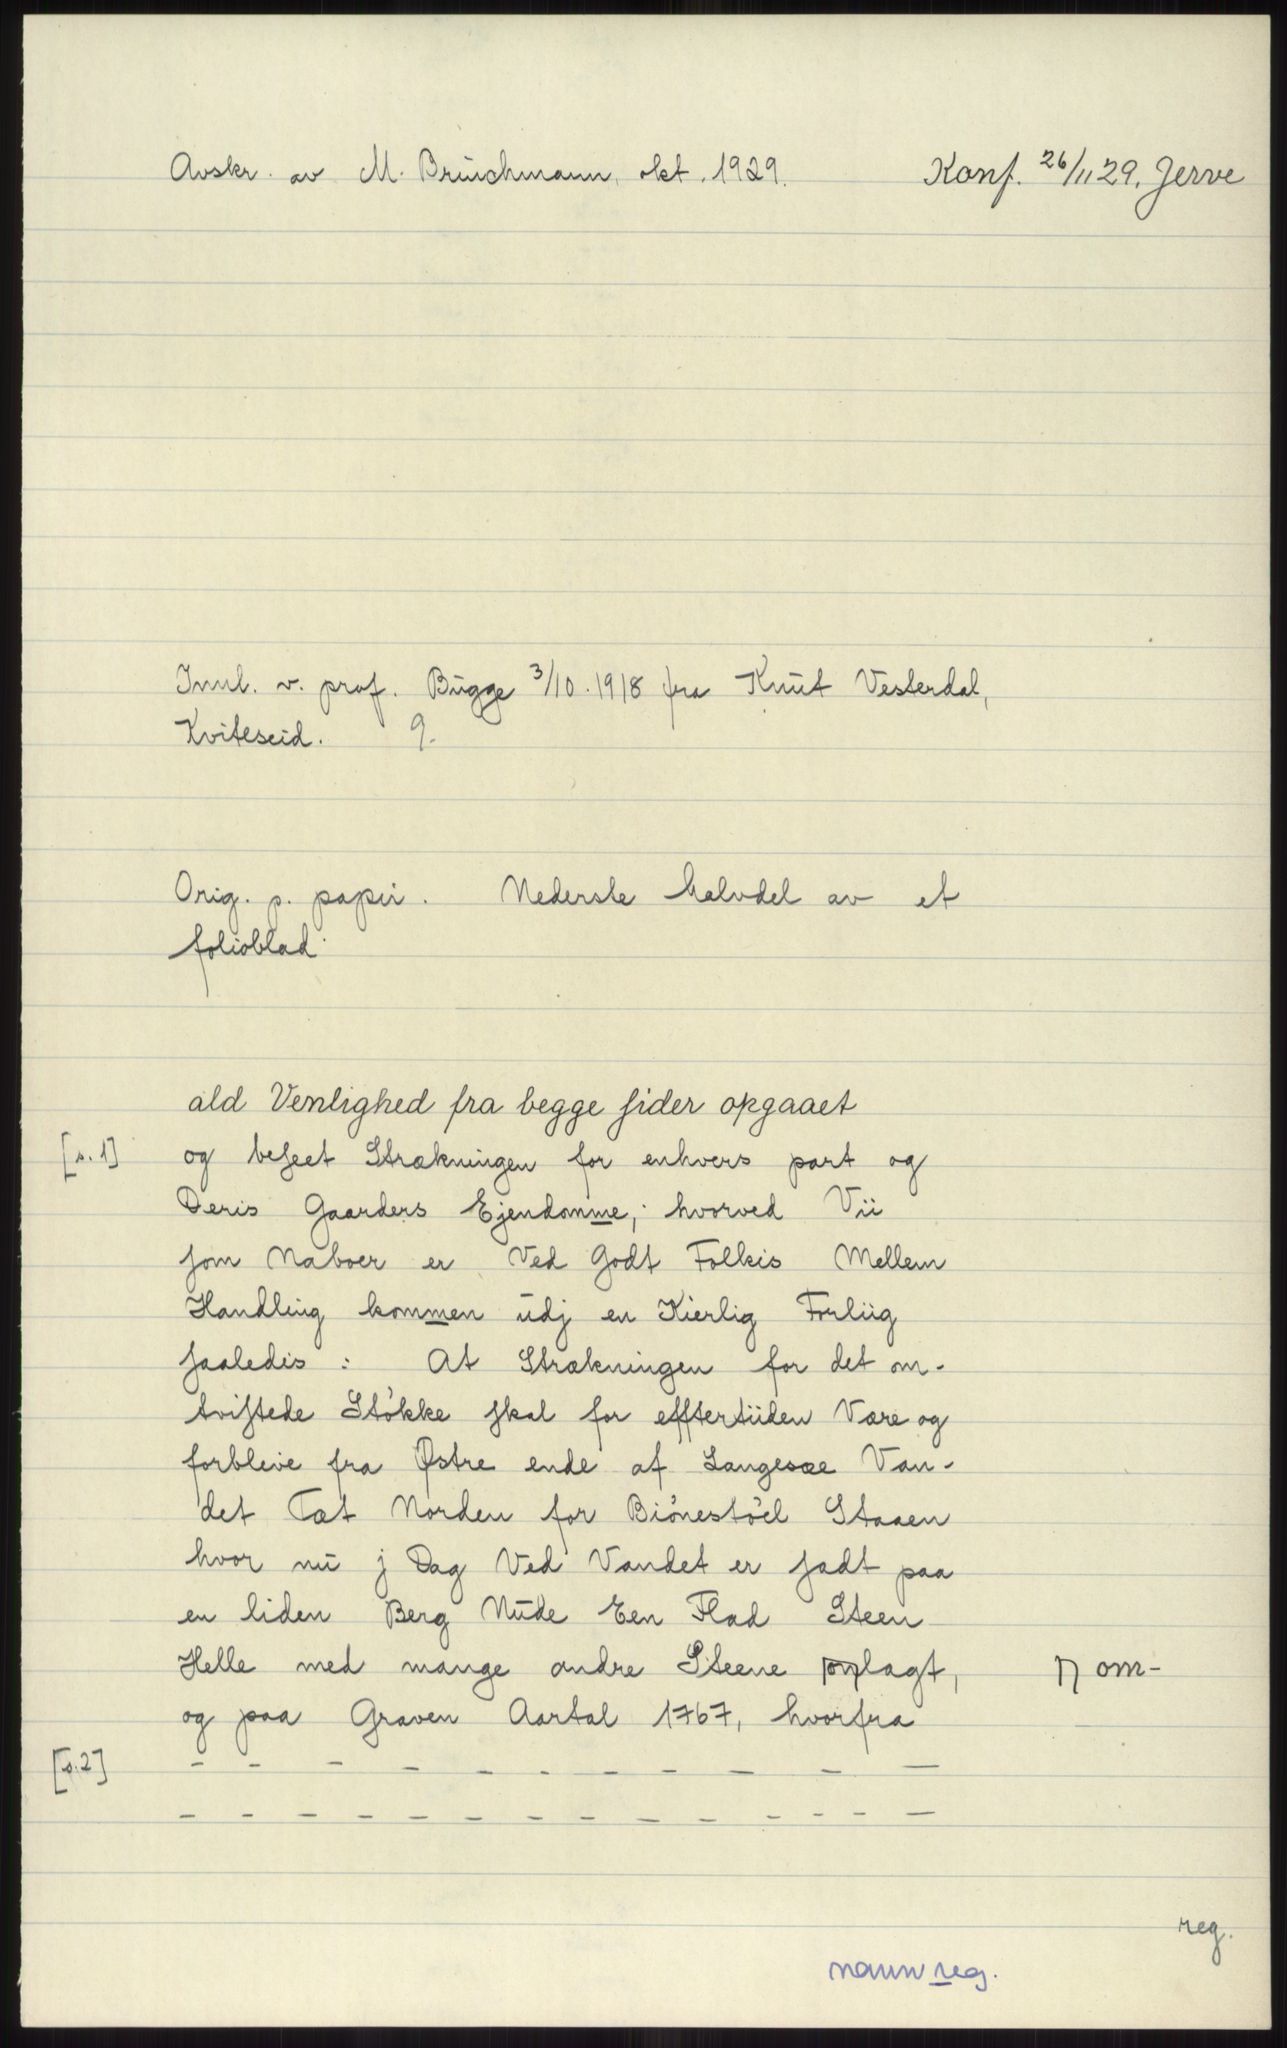 Avskr. av M. Bruichmann, okt. 1929. Konf. 26/11 29. Jerve
Innl. v. prof. Bugge 3/10.1918 fra Knut Vesterdal,
Kviteseid. 9.
Orig. p. papir. Nederste halvdel av et
folioblad.
ald Venlighed fra begge sider opgaaet
[s. 1] og beseet Strækningen for enhvers part og
Deris Gaarders Ejendomme, hvorved Vii
som Naboer er Ved Godt Folkis Mellem
Handling kommen udj en Kierlig Forliig
saaledis : At Strækningen for det om-
tvistede Støkke skal for efftertiiden Være og
forblive fra Østre ende af Langesæe Van-
det Tæt Norden for Biønestøel Staaen
hvor nu j Dag Ved Vandet er sadt paa
en liden Berg Nude Een Flad Steen
Helle med mange andre Steene omlagt, om-
og paa Graven Aartal 1767, hvorfra
[s. 2] - - - - - - - - - - -
- - - - - - - - - - - - -
reg.
navnreg.